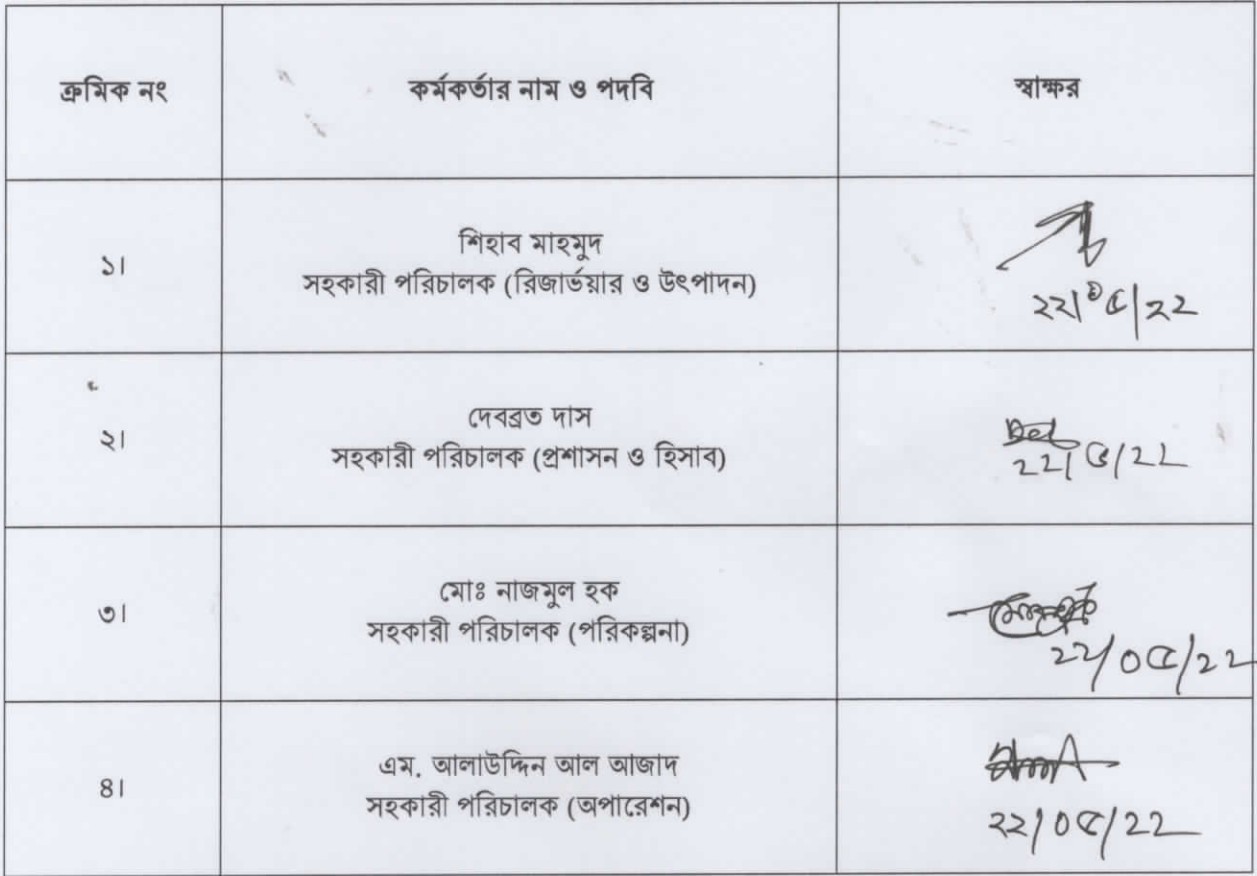 ক্রমিক নং কর্মকর্তার নাম ও পদবি স্বাক্ষর
শিহাব মাহমুদ
১। সহকারী পরিচালক (রিজার্ভয়ার ও উৎপাদন)
২২/০৫/২২
দেবব্রত দাস
২। সহকারী পরিচালক (প্রশাসন ও হিসাব)
২২/৫/২২
মোঃ নাজমুল হক
৩। সহকারী পরিচালক (পরিকল্পনা)
২২/০৫/২২
এম. আলাউদ্দিন আল আজাদ
৪। সহকারী পরিচালক (অপারেশন)
২২/০৫/২২